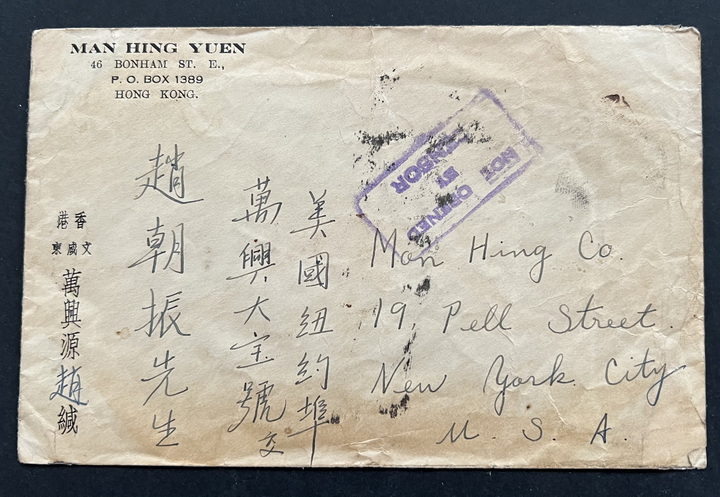 MAN HING YUEN
46 BONHAM ST. E.,
P. O. BOX 1389
HONG KONG.
NOT OPENED
BY
CENSOR
美國紐約埠
萬興大宝號交
趙朝振先生
香港
文咸東
萬興源趙緘
Man Hing Co.
19, Pell Street.
New York City
U. S. A.